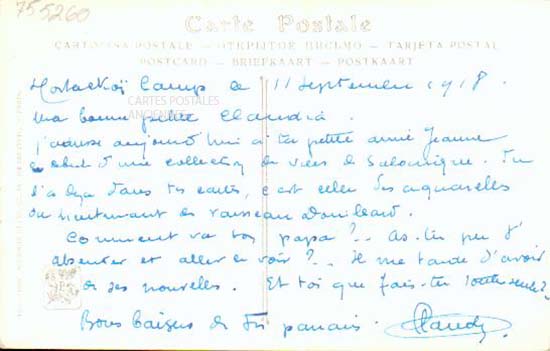 755260
Carte Postale
CARTOLINA POSTALE — ОТКРЫТОЕ ПИСЬМО — TARJETA POSTAL
POSTCARD — BRIEFKAART — POSTKAART
Camp le 11 Septembre 1918.
CARTES POSTALES
ANCIENNES
Ma bonne petite Claudia.
J'adresse aujourd'hui à ta petite amie Jeanne
le début d'une collection de vues de Salonique. Tu
l'as déjà dans tes cartes, c'est celle des aquarelles
du Lieutenant de Vaisseau
Comment va ton papa ?.. As-tu pu t'
absenter et aller le voir ?.. Il me tarde d'avoir
de ses nouvelles. Et toi que fais-tu toute seule ?
Bons baisers de ton parrain. Claudy